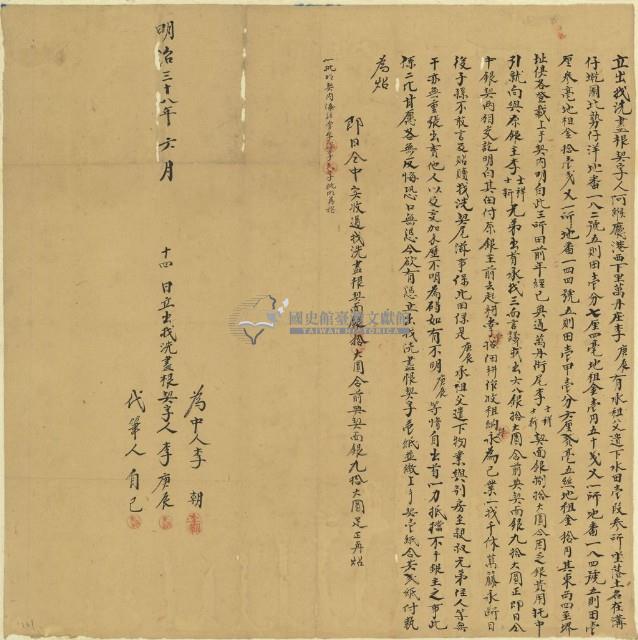 立出找洗盡根契字人阿緱廳港西下里萬丹庄李庚辰有承祖父遺下水田壹段參所坐落土名在溝
仔墘圍比勢仔洋地番一八二號五則田壹分七厘四毫地租金壹円五十戔又一所地番一八四號五則田壹
厘參毫地租金拾壹戔又一所地番一四四號五則田壹甲壹分六厘九毫五絲地租金拾円其東西四至界
址俱各登載上手契內明白此三所田前年經已典過萬丹街尾李士祥士新契面銀捌拾大圓今因乏銀費用托中
引就向與原銀主李士祥士新兄弟出首承找三面言議找出六八銀拾大圓合前典契面銀九拾大圓正即日全
中銀契兩相交訖明白其田付原銀主前去起耕掌管佃耕作收租納永為己業一找千休萬藤永斷日
後子孫不敢言及贖找洗契尾滋事保此田係是庚辰承祖父遺下物業與別房至親叔兄弟侄人等無
干亦無重張出賣他人以及交加來歷不明為碍如有不明庚辰等情自出首一力抵擋不干銀主之事此
係二比甘愿各無反悔恐口無憑今欲有憑立出找洗盡根契字壹紙並繳上手契壹紙合共貳紙付執
為炤
即日仝中實收過找洗盡根契面銀拾大圓合前典契面銀九拾大圓足正再炤
一批明契內
為中人李 朝
代筆人 自己
明治三十八年 六月 十四 日立出找洗盡根契字人李庚辰
國史館臺灣文獻館
TAIWAN HISTORICA